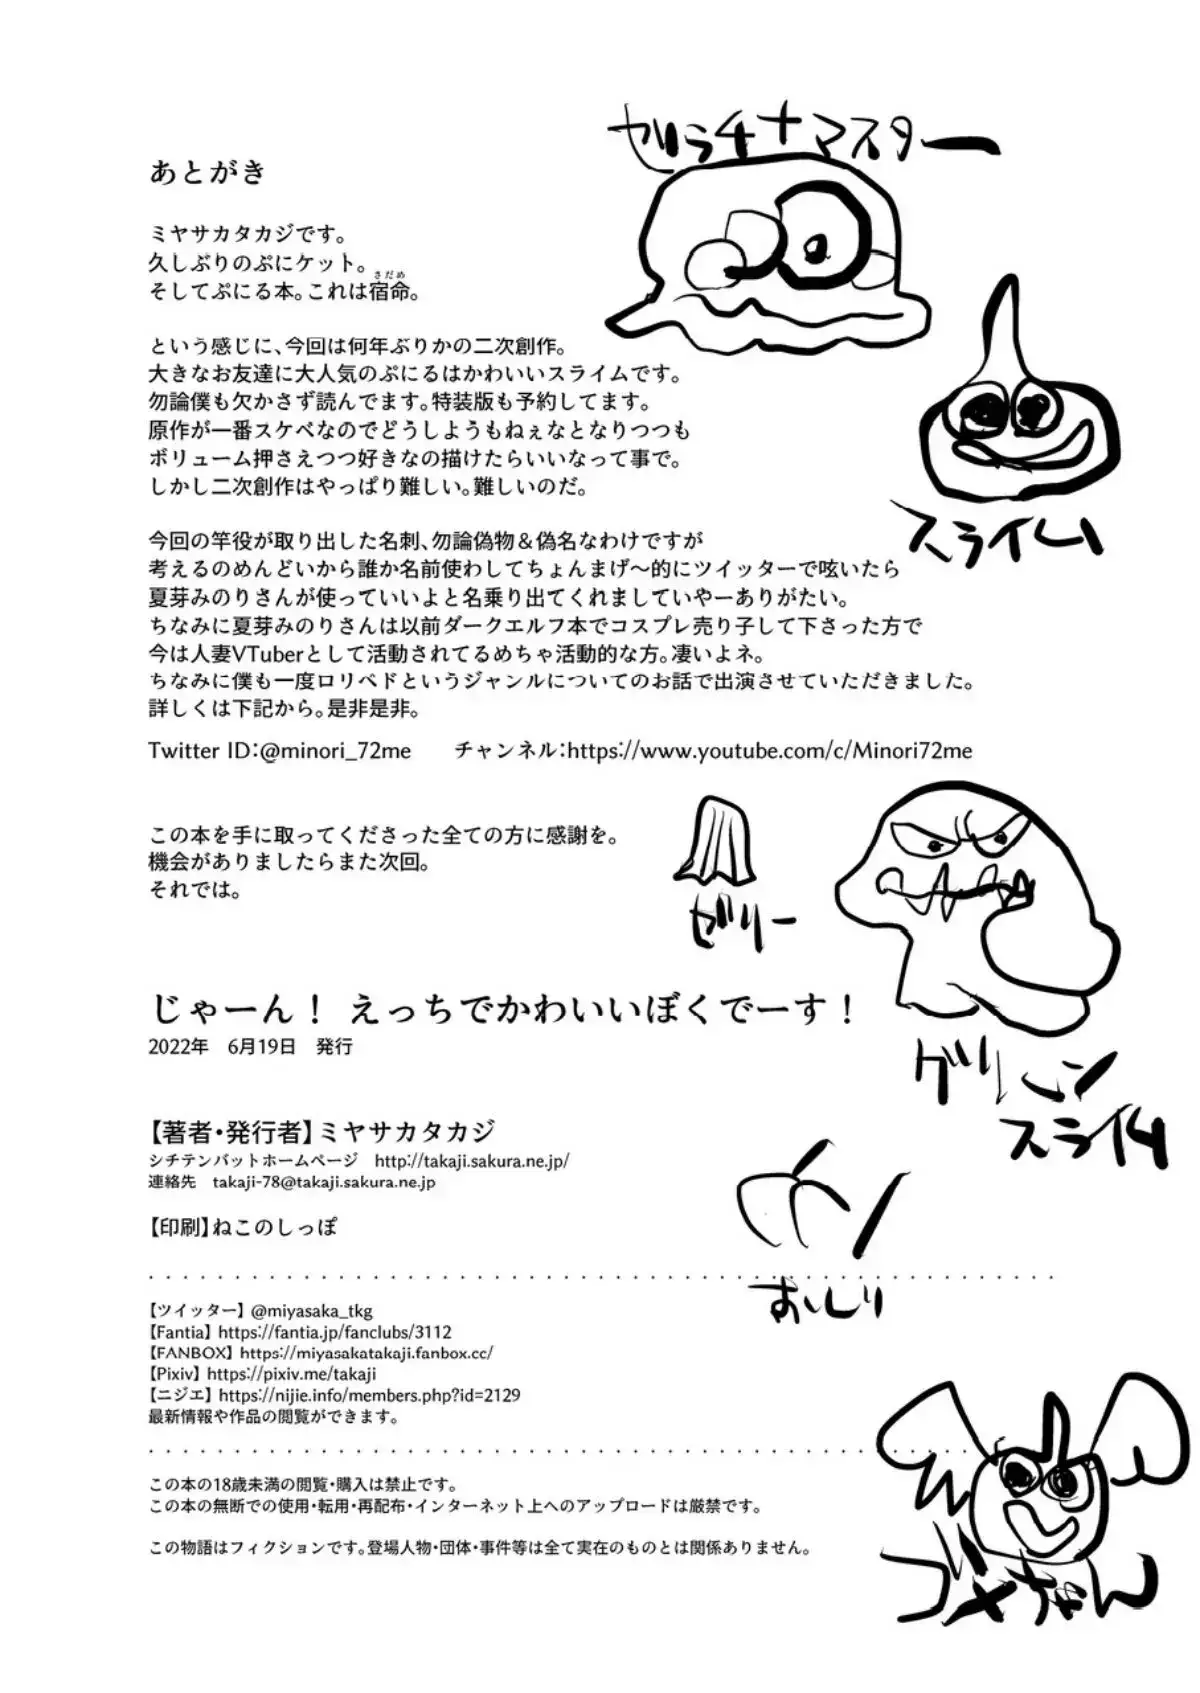 ゼリラチナマスター
あとがき
ミヤサカタカジです。
久しぶりのぷにケット。
さだめ
そしてぷにる本。これは宿命。
という感じに、今回は何年ぶりかの二次創作。
大きなお友達に大人気のぷにるはかわいいスライムです。
勿論僕も欠かさず読んでます。特装版も予約してます。
原作が一番スケベなのでどうしようもねぇなとなりつつも
ボリューム押さえつつ好きなの描けたらいいなって事で。
しかし二次創作はやっぱり難しい。難しいのだ。
スライム
今回の竿役が取り出した名刺、勿論偽物＆偽名なわけですが
考えるのめんどいから誰か名前使わしてちょんまげ〜的にツイッターで呟いたら
夏芽みのりさんが使っていいよと名乗り出てくれましていやーありがたい。
ちなみに夏芽みのりさんは以前ダークエルフ本でコスプレ売り子して下さった方で
今は人妻VTuberとして活動されてるめちゃ活動的な方。凄いよネ。
ちなみに僕も一度ロリベドというジャンルについてのお話で出演させていただきました。
詳しくは下記から。是非是非。
Twitter ID：@minori_72me　チャンネル：https://www.youtube.com/c/Minori72me
この本を手に取ってくださった全ての方に感謝を。
機会がありましたらまた次回。
それでは。
ゼリー
じゃーん！ えっちでかわいいぼくでーす！
2022年　6月19日　発行
グリーン
スライム
【著者・発行者】ミヤサカタカジ
シチテンバットホームページ　http://takaji.sakura.ne.jp/
連絡先　takaji-78@takaji.sakura.ne.jp
【印刷】ねこのしっぽ
おしり
【ツイッター】@miyasaka_tkg
【Fantia】https://fantia.jp/fanclubs/3112
【FANBOX】https://miyasakatakaji.fanbox.cc/
【Pixiv】https://pixiv.me/takaji
【ニジエ】https://nijie.info/members.php?id=2129
最新情報や作品の閲覧ができます。
この本の18歳未満の閲覧・購入は禁止です。
この本の無断での使用・転用・再配布・インターネット上へのアップロードは厳禁です。
この物語はフィクションです。登場人物・団体・事件等は全て実在のものとは関係ありません。
ゴメちゃん